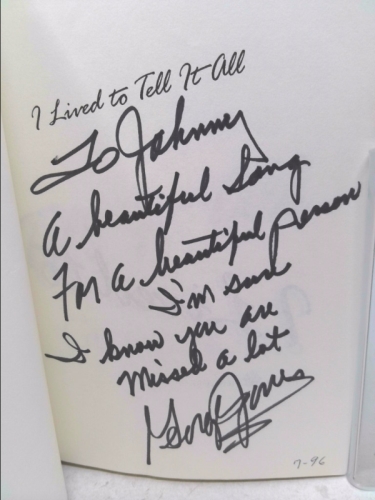 I Lived to Tell It All
To Johnny
A beautiful Song
For a beautiful person
I'm sure
I know you are
Missed a lot
George Jones
7-96